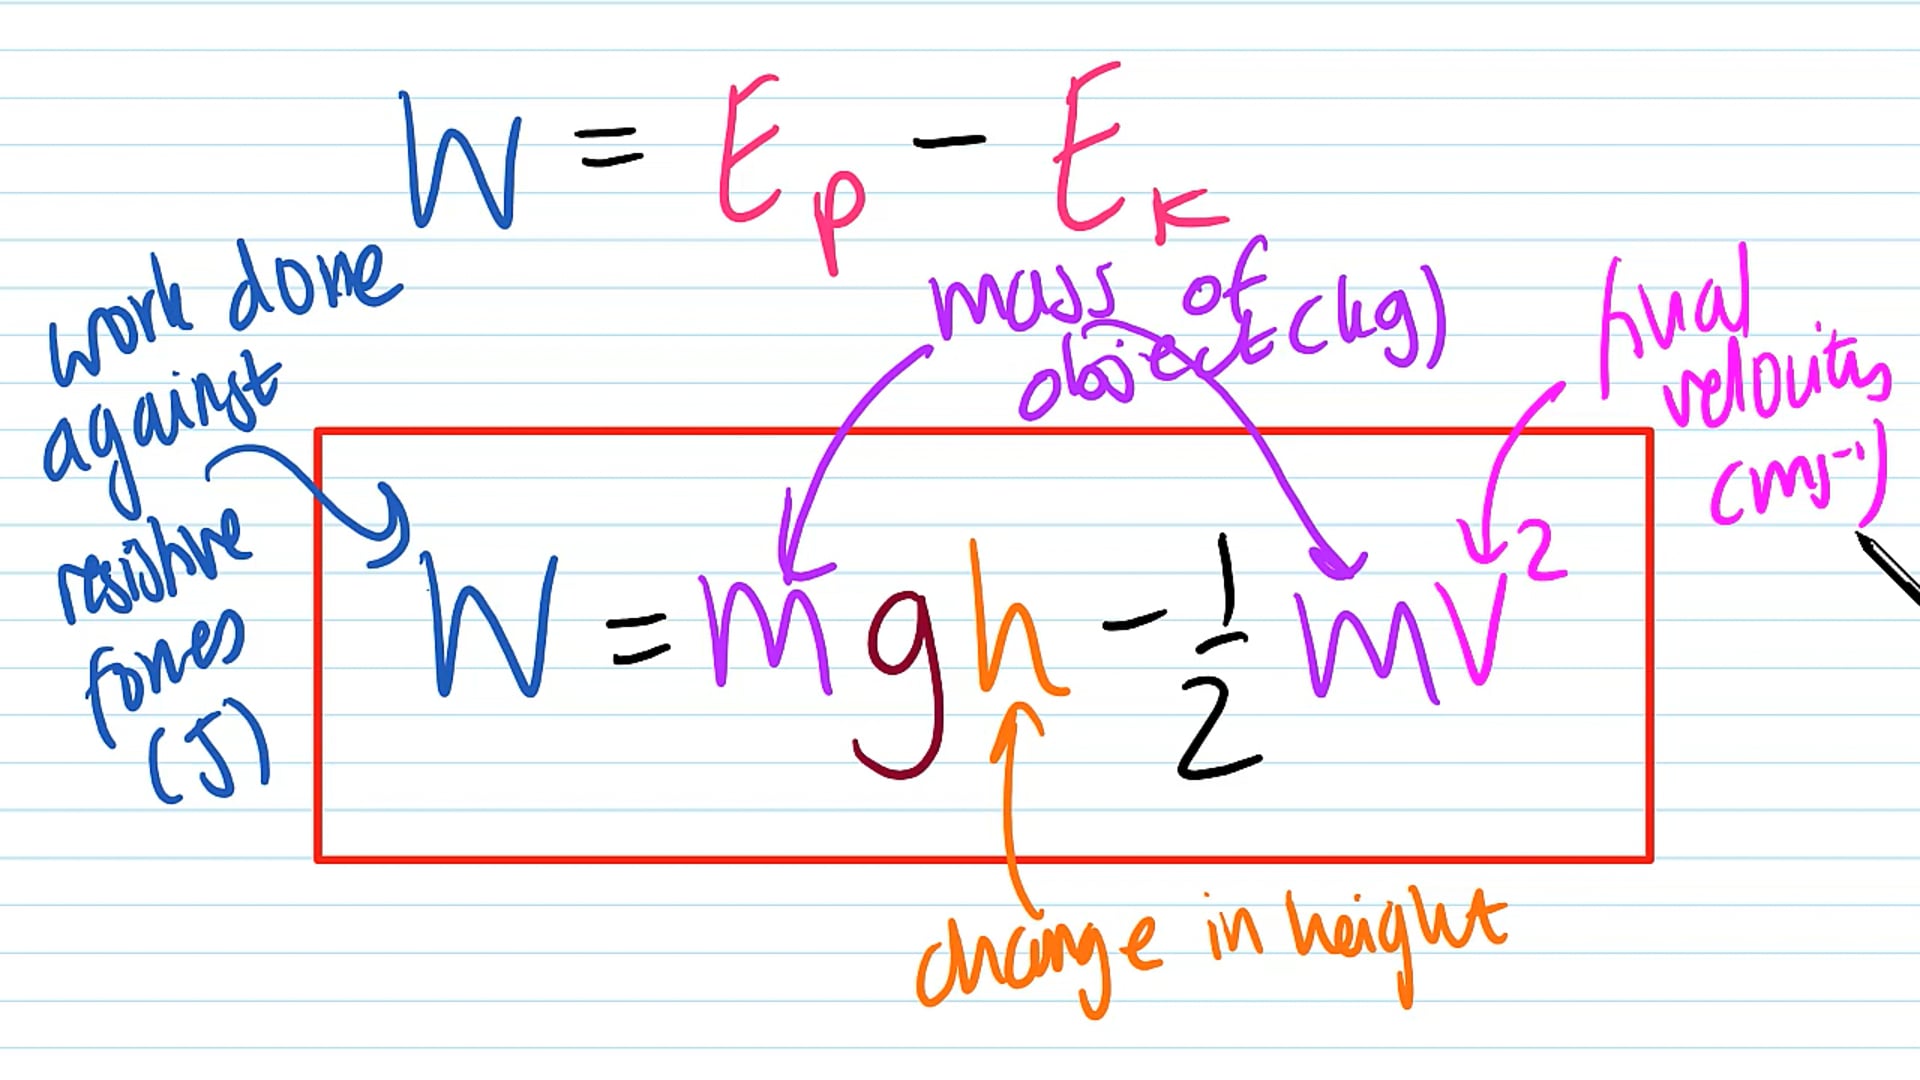 W = Ep - Ek
work done
against
resistive
forces
(J)
mass of
object (kg)
final
velocity
(ms⁻¹)
W = mgh - 1/2 mv²
change in height